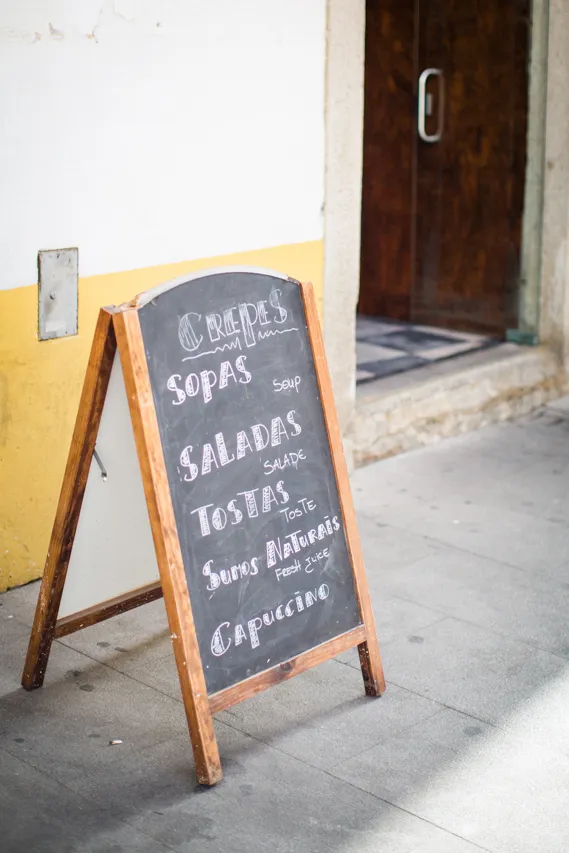 CREPES
SOPAS
SOUP
SALADAS
SALADE
TOSTAS
TOSTE
SUMOS NATURAIS
FRESH JUICE
CAPUCCINO